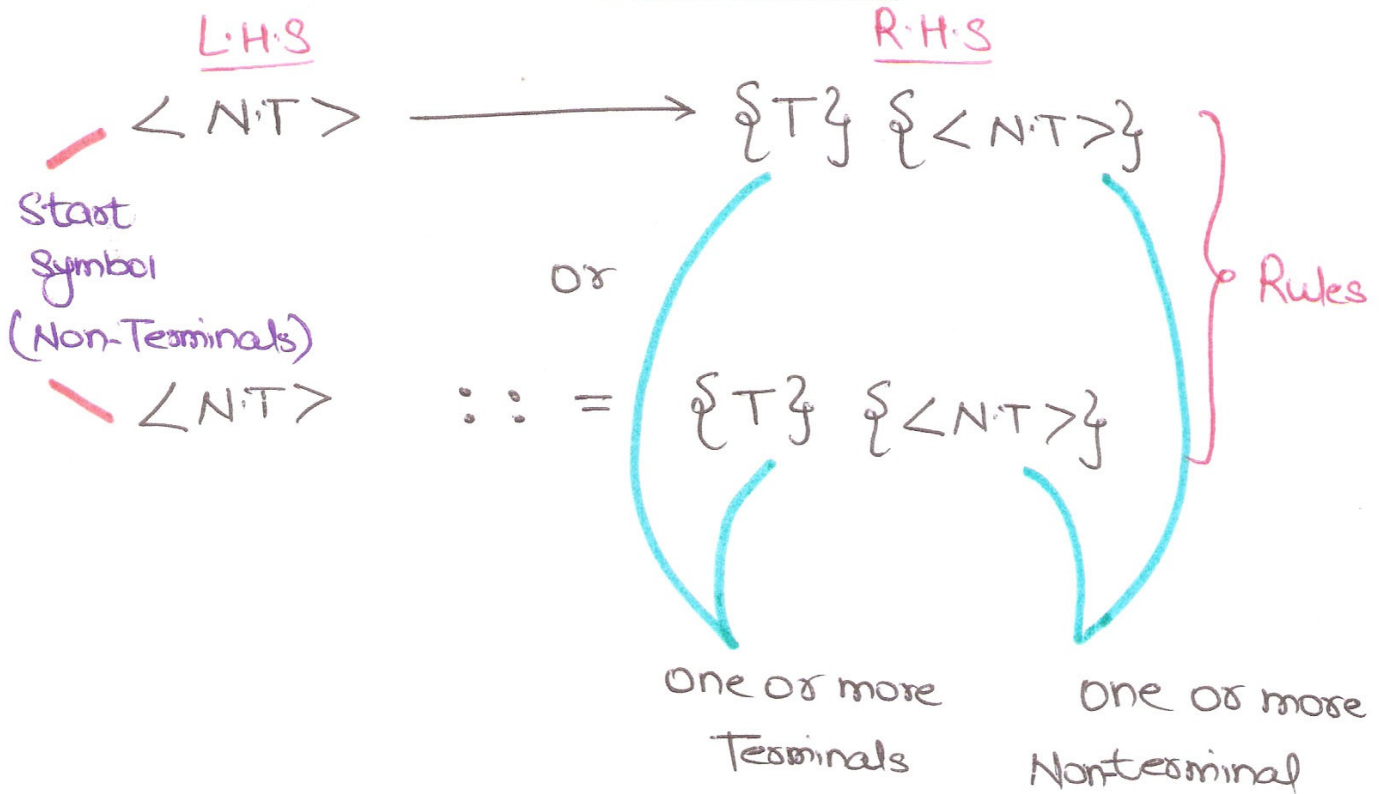 L.H.S R.H.S
<N.T> → {T} {<N.T>}
Start
Symbol
(Non-Terminals)
or
Rules
<N.T> : : = {T} {<N.T>}
One or more
Terminals
One or more
Non-terminal